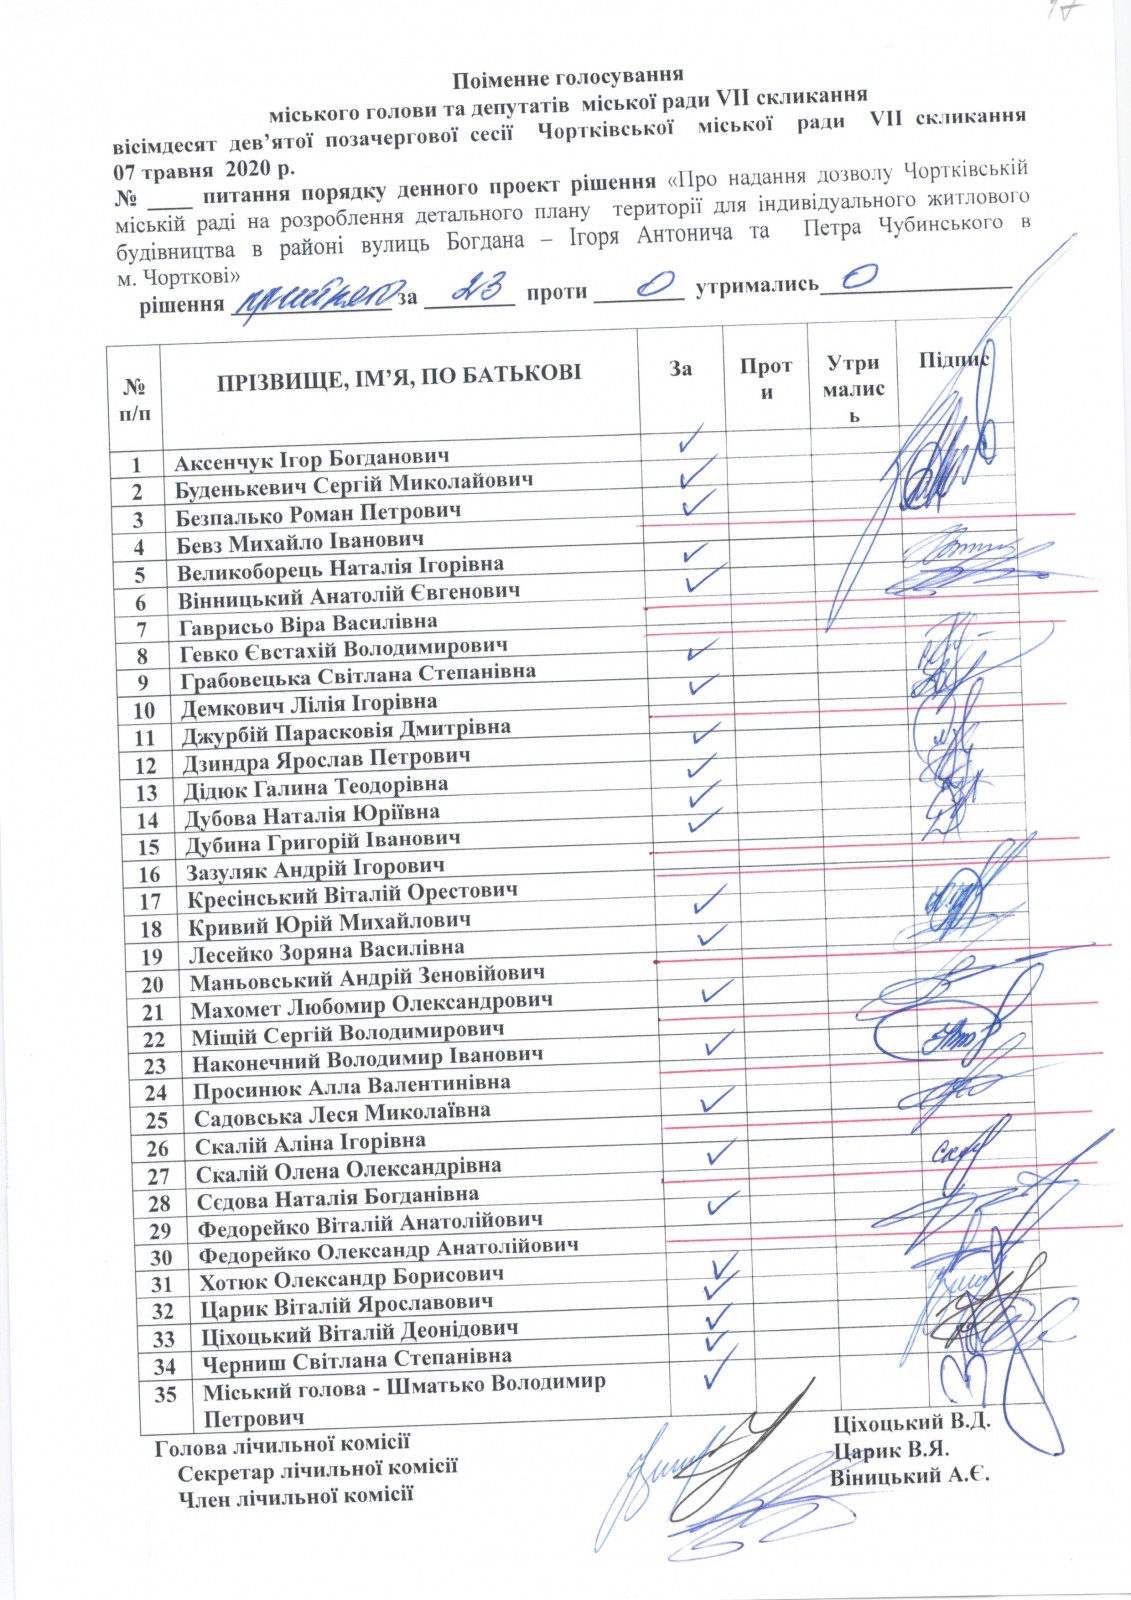 17
Поіменне голосування
міського голови та депутатів міської ради VII скликання
вісімдесят дев’ятої позачергової сесії Чортківської міської ради VII скликання
07 травня 2020 р.
№ ____ питання порядку денного проект рішення «Про надання дозволу Чортківській
міській раді на розроблення детального плану території для індивідуального житлового
будівництва в районі вулиць Богдана – Ігоря Антонича та Петра Чубинського в
м. Чорткові»
рішення прийнято за 23 проти 0 утримались 0
№ п/п ПРІЗВИЩЕ, ІМ’Я, ПО БАТЬКОВІ За Прот и Утри малис ь Підпис
1 Аксенчук Ігор Богданович ✓
2 Буденькевич Сергій Миколайович ✓
3 Безпалько Роман Петрович ✓
4 Бевз Михайло Іванович
5 Великоборець Наталія Ігорівна ✓
6 Вінницький Анатолій Євгенович ✓
7 Гаврисьо Віра Василівна
8 Гевко Євстахій Володимирович
9 Грабовецька Світлана Степанівна ✓
10 Демкович Лілія Ігорівна ✓
11 Джурбій Парасковія Дмитрівна
12 Дзиндра Ярослав Петрович ✓
13 Дідюк Галина Теодорівна ✓
14 Дубова Наталія Юріївна ✓
15 Дубина Григорій Іванович ✓
16 Зазуляк Андрій Ігорович
17 Кресінський Віталій Орестович
18 Кривий Юрій Михайлович ✓
19 Лесейко Зоряна Василівна ✓
20 Маньовський Андрій Зеновійович
21 Махомет Любомир Олександрович ✓
22 Міщій Сергій Володимирович
23 Наконечний Володимир Іванович ✓
24 Просинюк Алла Валентинівна
25 Садовська Леся Миколаївна ✓
26 Скалій Аліна Ігорівна
27 Скалій Олена Олександрівна ✓
28 Сєдова Наталія Богданівна
29 Федорейко Віталій Анатолійович ✓
30 Федорейко Олександр Анатолійович
31 Хотюк Олександр Борисович ✓
32 Царик Віталій Ярославович ✓
33 Ціхоцький Віталій Деонідович ✓
34 Черниш Світлана Степанівна ✓
35 Міський голова - Шматько Володимир ✓
Петрович
Голова лічильної комісії Ціхоцький В.Д.
Секретар лічильної комісії Царик В.Я.
Член лічильної комісії Віницький А.Є.